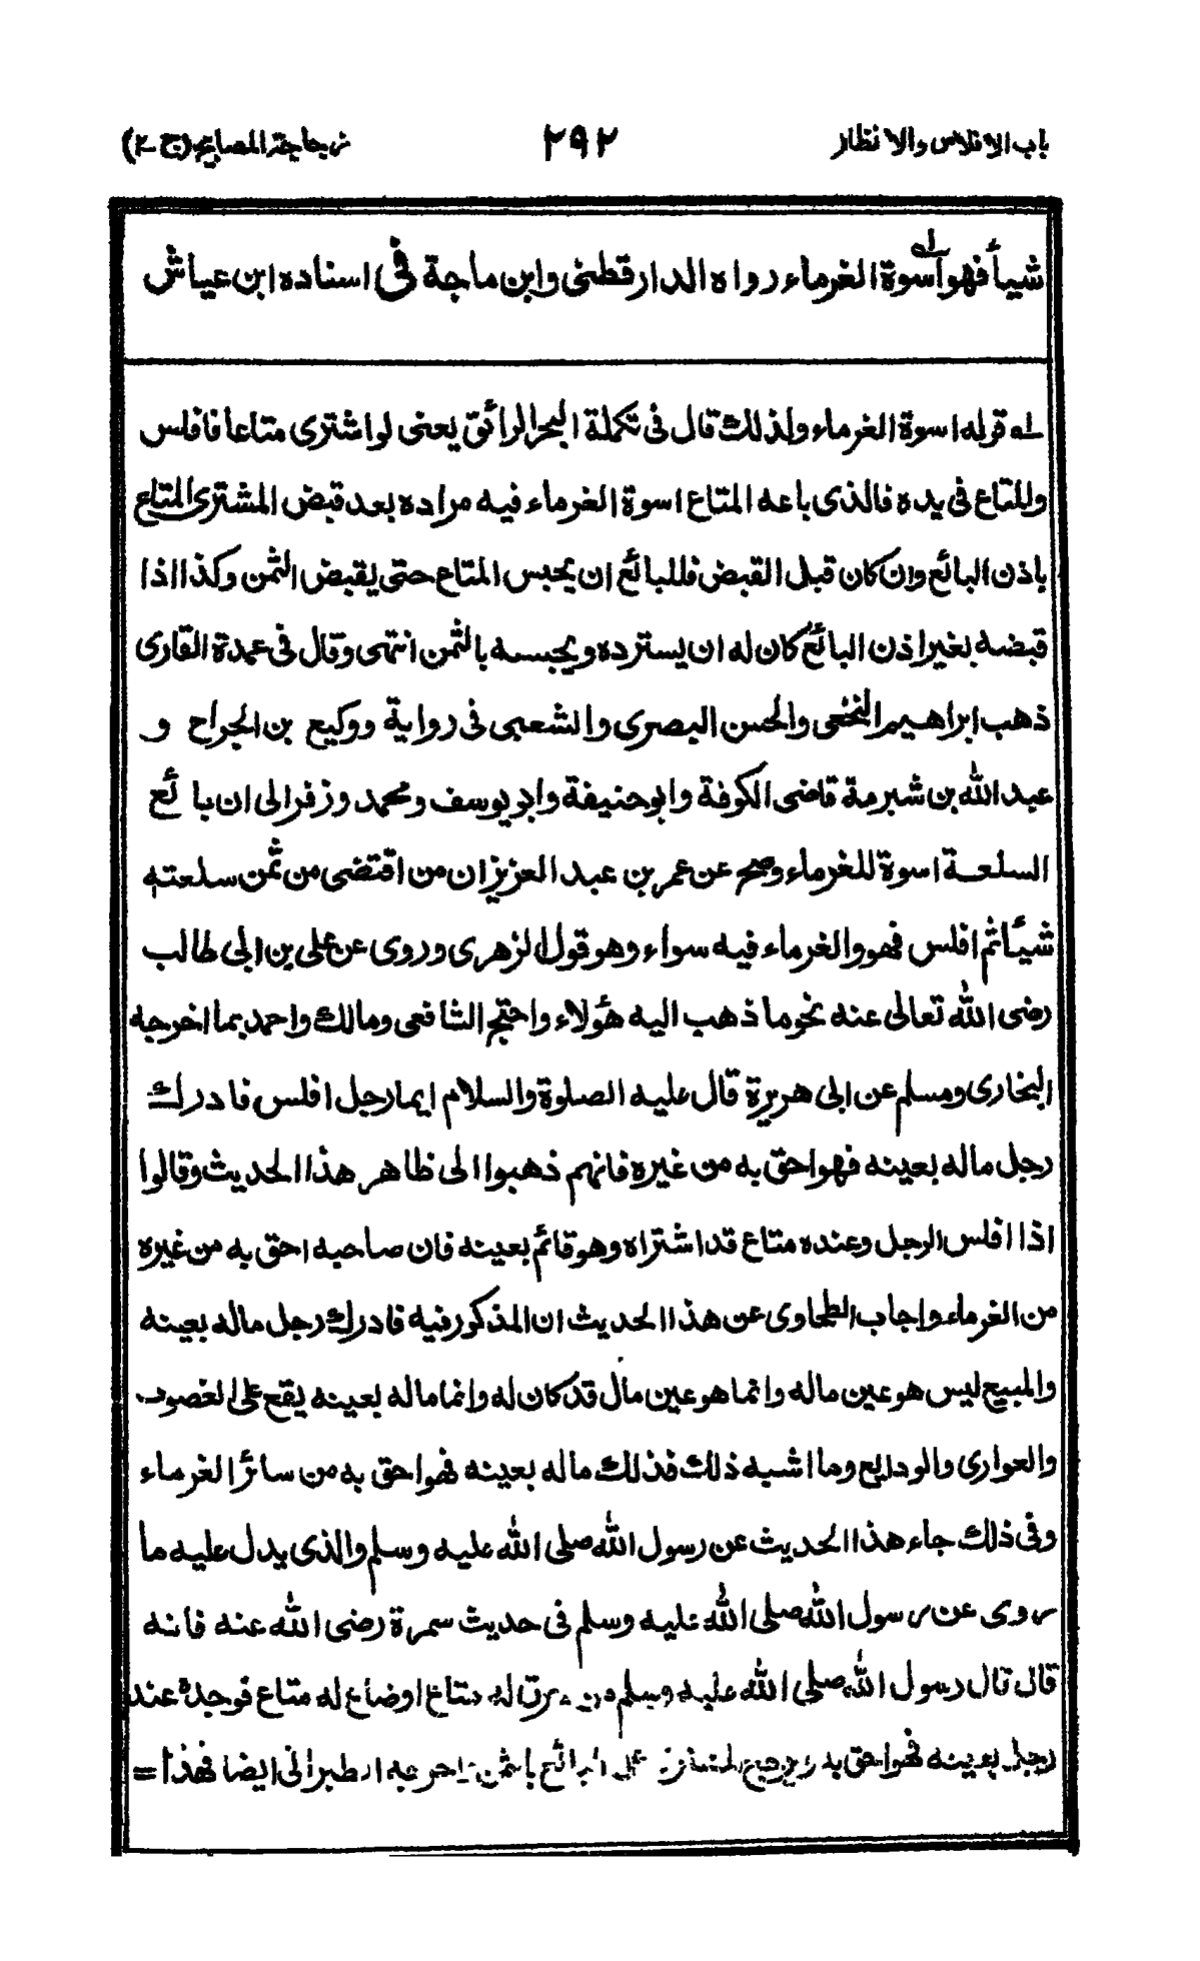 باب الافلاس والانظار ٢٩٢ زجاجة المصابيح (ج-٢)
شيأ فهو اسوة الغرماء رواه الدارقطنى وابن ماجة فى اسناده ابن عياش
له قوله اسوة الغرماء ولذلك قال فى تكملة البحر الرائق يعنى لو اشترى متاعا فافلس
والمتاع فى يده فالذى باعه المتاع اسوة الغرماء فيه مراده بعد قبض المشترى المتاع
باذن البائع وان كان قبل القبض فللبائع ان يحبس المتاع حتى يقبض الثمن وكذا اذا
قبضه بغير اذن البائع كان له ان يسترده ويحبسه بالثمن انتهى وقال فى عمدة القارى
ذهب ابراهيم النخعى والحسن البصرى والشعبى فى رواية ووكيع بن الجراح و
عبد الله بن شبرمة قاضى الكوفة وابوحنيفة وابويوسف ومحمد وزفر الى ان بائع
السلعة اسوة للغرماء وصح عن عمر بن عبد العزيز ان من اقتضى من ثمن سلعته
شيئا ثم افلس فهو والغرماء فيه سواء وهو قول الزهرى وروى عن على بن ابى طالب
رضى الله تعالى عنه نحو ما ذهب اليه هؤلاء واحتج الشافعى ومالك واحمد بما اخرجه
البخارى ومسلم عن ابى هريرة قال عليه الصلوة والسلام ايما رجل افلس فادرك
رجل ماله بعينه فهو احق به من غيره فانهم ذهبوا الى ظاهر هذا الحديث وقالوا
اذا افلس الرجل وعنده متاع قد اشتراه وهو قائم بعينه فان صاحبه احق به من غيره
من الغرماء واجاب الطحاوى عن هذا الحديث ان المذكور فيه فادرك رجل ماله بعينه
والمبيع ليس هو عين ماله وانما هو عين مال قد كان له وانما ماله بعينه يقع على الغصوب
والعوارى والودايع وما اشبه ذلك فذلك ماله بعينه فهو احق به من سائر الغرماء
وفى ذلك جاء هذا الحديث عن رسول الله صلى الله عليه وسلم والذى يدل عليه ما
روى عن رسول الله صلى الله عليه وسلم فى حديث سمرة رضى الله عنه فانه
قال قال رسول الله صلى الله عليه وسلم من سرق له متاع اوضاع له متاع فوجده عند
رجل بعينه فهو احق به ويرجع المشترى على البائع بالثمن اخرجه الطبرانى ايضا فهذا =